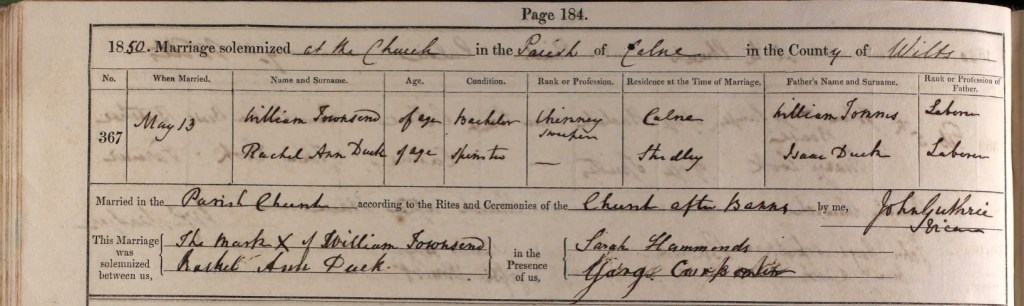 Page 184.
1850. Marriage solemnized at the Church in the Parish of Calne in the County of Wilts
No. When Married. Name and Surname. Age. Condition. Rank or Profession. Residence at the Time of Marriage. Father's Name and Surname. Rank or Profession of Father.
367 May 13 William Townsend of age Bachelor Chimney sweeper Calne William Towns Laborer
Rachel Ann Duck of age Spinster — Studley Isaac Duck Laborer
Married in the Parish Church according to the Rites and Ceremonies of the Church after Banns by me, John Guthrie Vicar
This Marriage was solemnized between us, The Mark X of William Townsend
Rachel Ann Duck.
in the Presence of us, Sarah Hammonds
George Carpenter